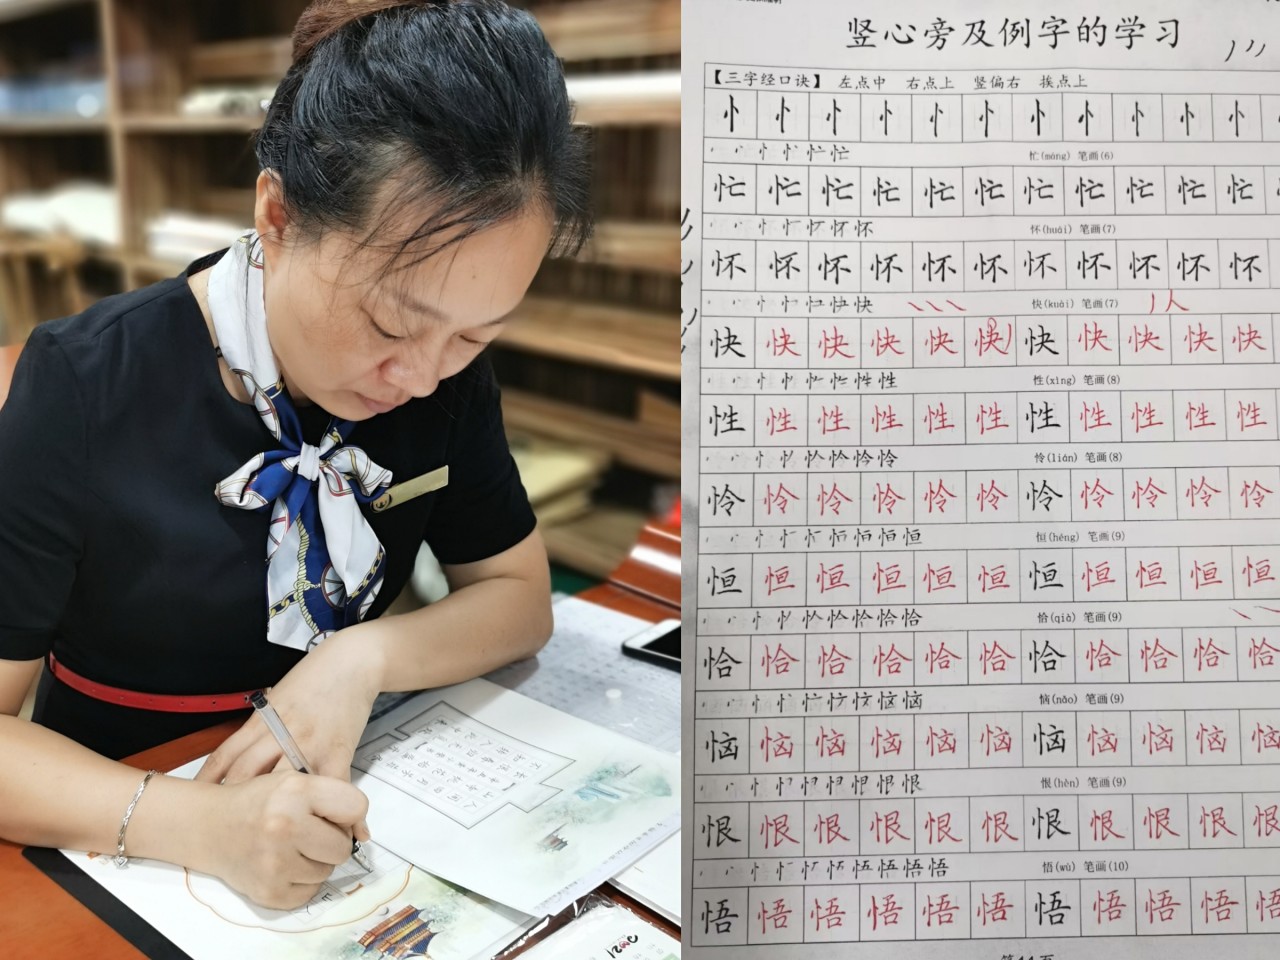 竖心旁及例字的学习
【三字经口诀】 左点中 右点上 竖偏右 挨点上
忄 忄 忄 忄 忄 忄 忄 忄 忄 忄 忄
忙(máng) 笔画(6)
忙 忙 忙 忙 忙 忙 忙 忙 忙 忙 忙
怀(huái) 笔画(7)
怀 怀 怀 怀 怀 怀 怀 怀 怀 怀 怀
快(kuài) 笔画(7)
快 快 快 快 快 快 快 快 快 快 快
性(xìng) 笔画(8)
性 性 性 性 性 性 性 性 性 性 性
怜(lián) 笔画(8)
怜 怜 怜 怜 怜 怜 怜 怜 怜 怜 怜
恒(héng) 笔画(9)
恒 恒 恒 恒 恒 恒 恒 恒 恒 恒 恒
恰(qià) 笔画(9)
恰 恰 恰 恰 恰 恰 恰 恰 恰 恰 恰
恼(nǎo) 笔画(9)
恼 恼 恼 恼 恼 恼 恼 恼 恼 恼 恼
恨(hèn) 笔画(9)
恨 恨 恨 恨 恨 恨 恨 恨 恨 恨 恨
悟(wù) 笔画(10)
悟 悟 悟 悟 悟 悟 悟 悟 悟 悟 悟
2021